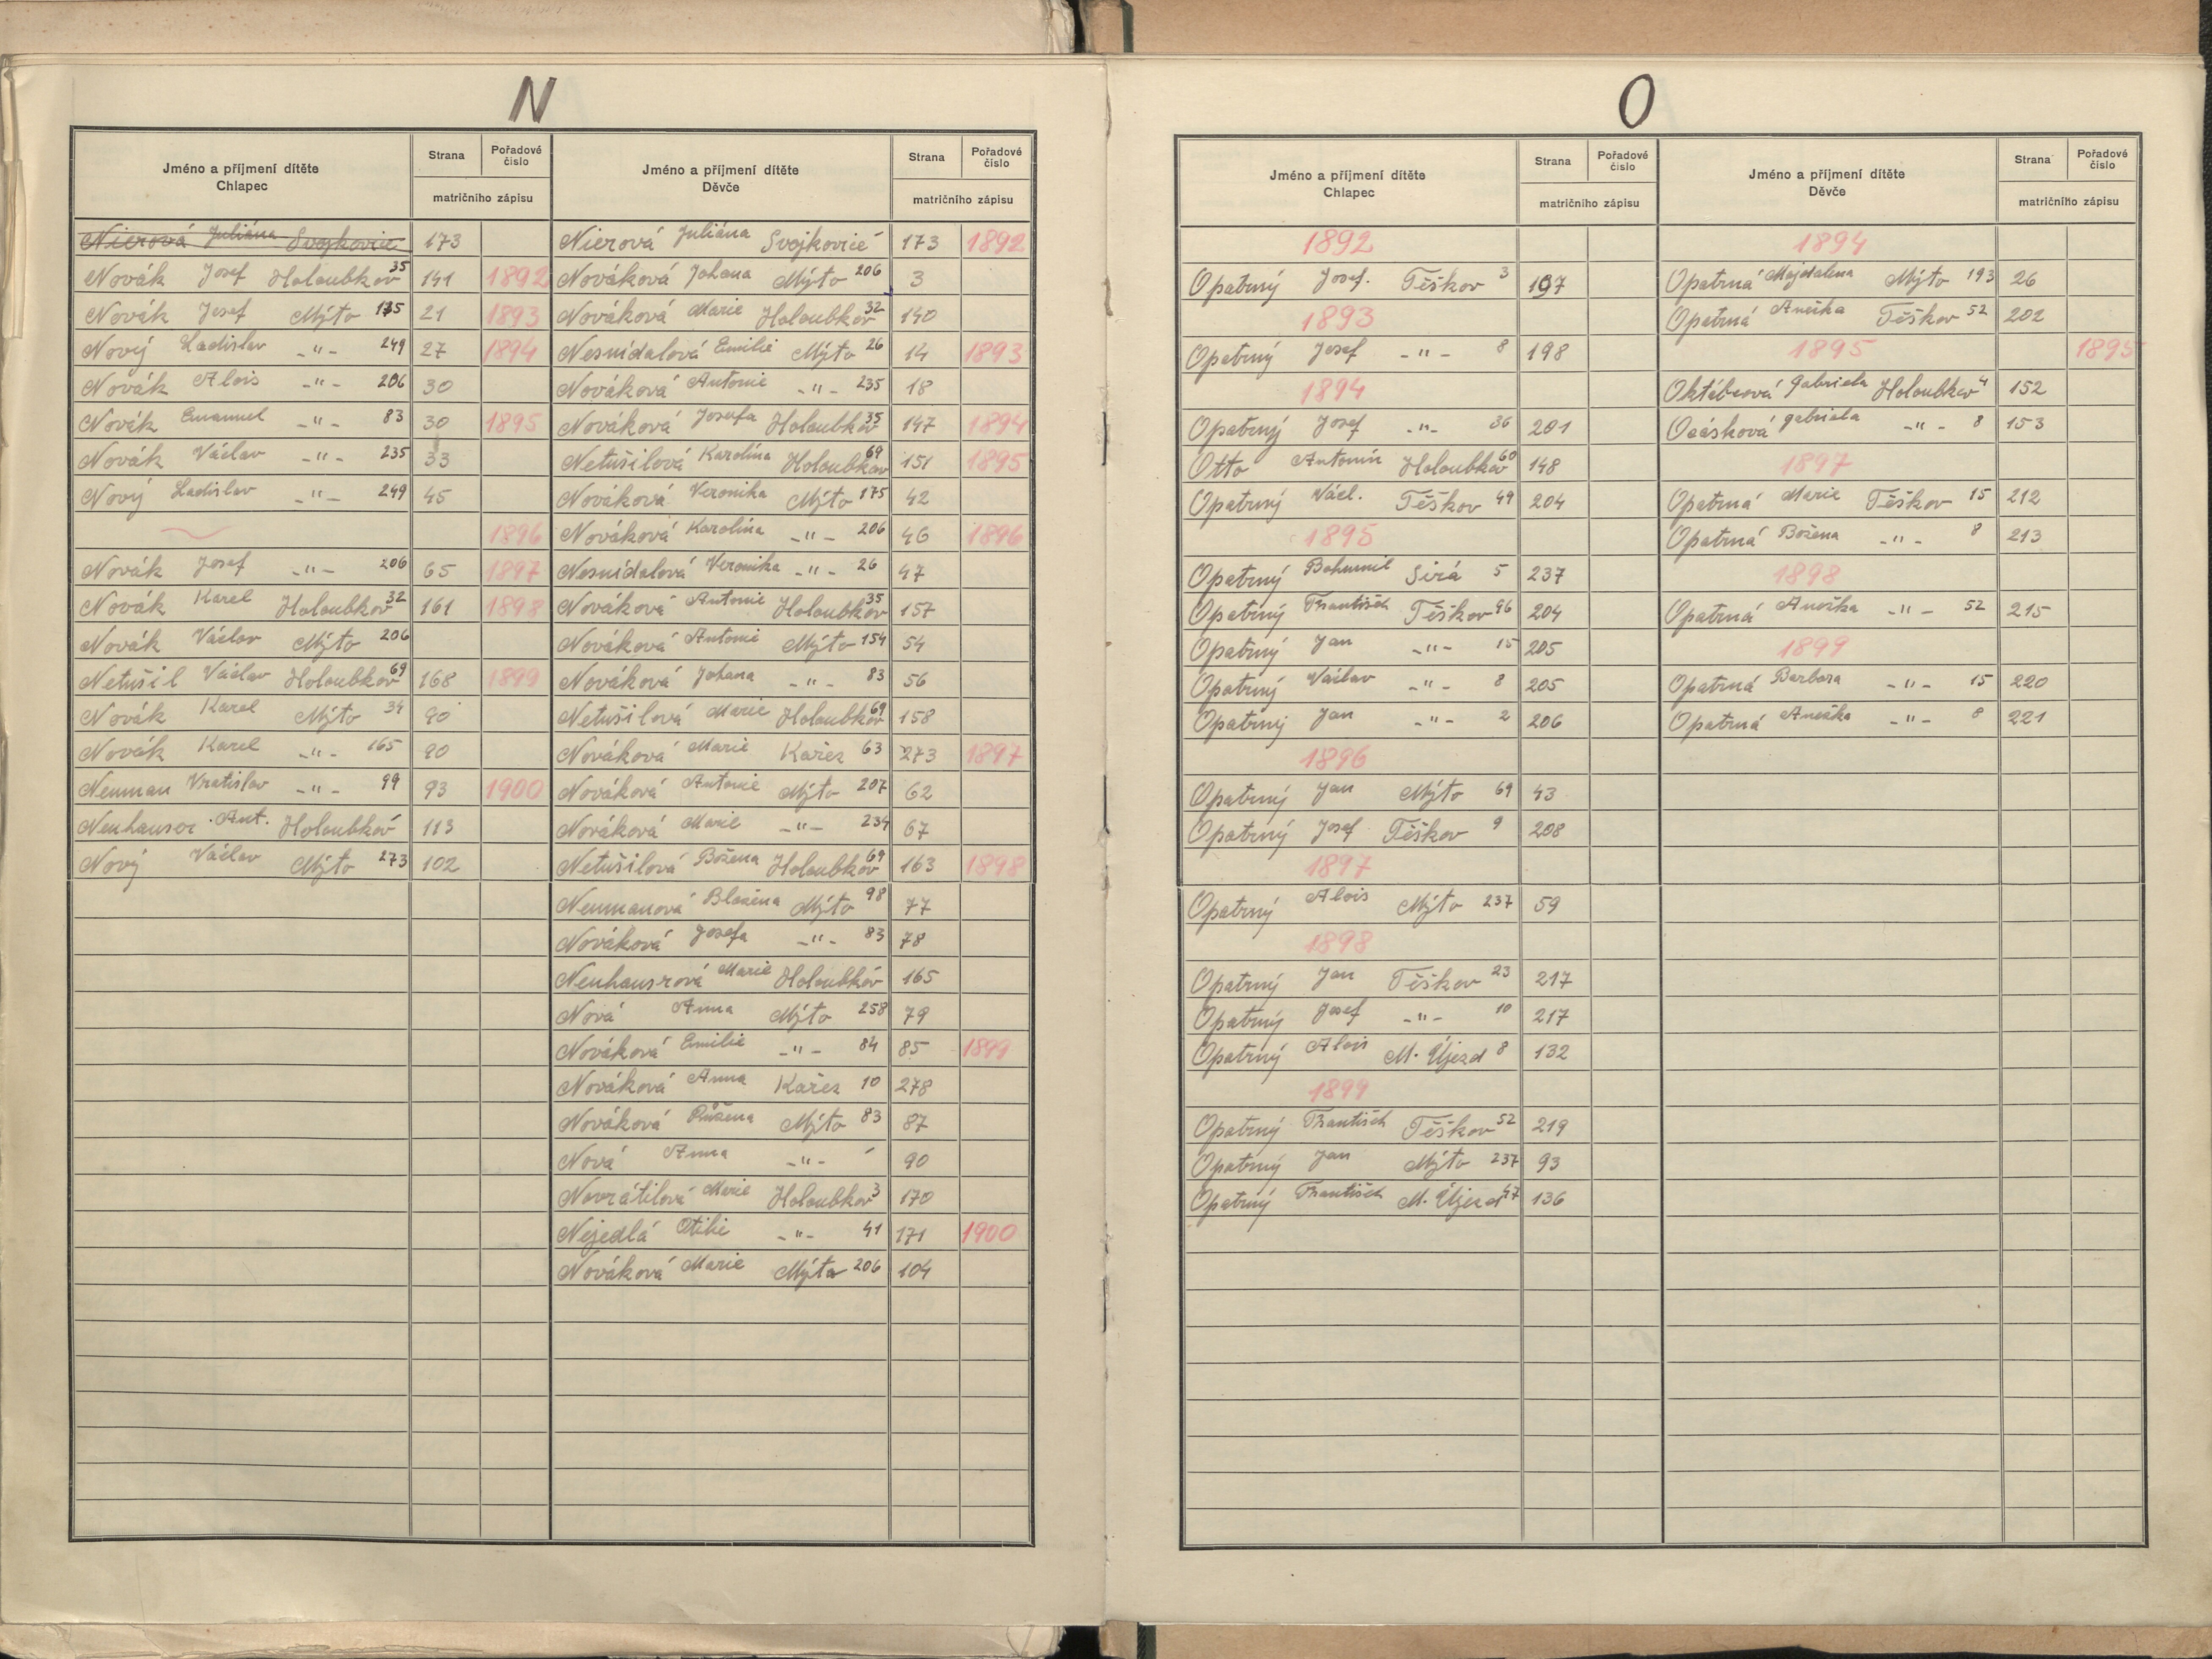 N
Jméno a příjmení dítěte
Chlapec
Strana
Pořadové číslo
matričního zápisu
Jméno a příjmení dítěte
Děvče
Strana
Pořadové číslo
matričního zápisu
Nierová Juliána Svojkovice 173
Novák Josef Holoubkov 35 141 1892
Novák Josef Mýto 135 21 1893
Nový Ladislav -"- 249 27 1894
Novák Alois -"- 206 30
Novák Emanuel -"- 83 30 1895
Novák Václav -"- 235 33
Nový Ladislav -"- 249 45
1896
Novák Josef -"- 206 65 1897
Novák Karel Holoubkov 32 161 1898
Novák Václav Mýto 206
Netušil Václav Holoubkov 69 168 1899
Novák Karel Mýto 34 90
Novák Karel -"- 165 90
Neuman Vratislav -"- 99 93 1900
Neuhauser Ant. Holoubkov 113
Nový Václav Mýto 273 102
Nierová Juliána Svojkovice 173 1892
Nováková Johana Mýto 206 3
Nováková Marie Holoubkov 32 140
Nesnídalová Emilie Mýto 26 14 1893
Nováková Antonie -"- 235 18
Nováková Josefa Holoubkov 35 147 1894
Netušilová Karolína Holoubkov 69 151 1895
Nováková Veronika Mýto 175 42
Nováková Karolína -"- 206 46 1896
Nesnídalová Veronika -"- 26 47
Nováková Antonie Holoubkov 35 157
Nováková Antonie Mýto 154 54
Nováková Johana -"- 83 56
Netušilová Marie Holoubkov 69 158
Nováková Marie Kařez 63 273 1897
Nováková Antonie Mýto 207 62
Nováková Marie -"- 234 67
Netušilová Božena Holoubkov 69 163 1898
Neumanová Blažena Mýto 98 77
Nováková Josefa -"- 83 78
Neuhausrová Marie Holoubkov 165
Nová Anna Mýto 258 79
Nováková Emilie -"- 84 85 1899
Nováková Anna Kařez 10 278
Nováková Růžena Mýto 83 87
Nová Anna -"- 90
Navrátilová Marie Holoubkov 3 170
Nejedlá Otilie -"- 41 171 1900
Nováková Marie Mýto 206 104
O
Jméno a příjmení dítěte
Chlapec
Strana
Pořadové číslo
matričního zápisu
Jméno a příjmení dítěte
Děvče
Strana
Pořadové číslo
matričního zápisu
1892
Opatrný Josef. Těškov 3 197
1893
Opatrný Josef -"- 8 198
1894
Opatrný Josef -"- 36 201
Otto Antonín Holoubkov 60 148
Opatrný Václ. Těškov 49 204
1895
Opatrný Bohumil Sirá 5 237
Opatrný František Těškov 46 204
Opatrný Jan -"- 15 205
Opatrný Václav -"- 8 205
Opatrný Jan -"- 2 206
1896
Opatrný Jan Mýto 69 43
Opatrný Josef Těškov 9 208
1897
Opatrný Alois Mýto 237 59
1898
Opatrný Jan Těškov 23 217
Opatrný Josef -"- 10 217
Opatrný Alois M. Újezd 8 132
1899
Opatrný František Těškov 52 219
Opatrný Jan Mýto 237 93
Opatrný František M. Újezd 47 136
1894
Opatrná Majdalena Mýto 193 26
Opatrná Anežka Těškov 52 202
1895 1895
Oktábcová Gabriela Holoubkov 4 152
Ocásková Gabriela -"- 8 153
1897
Opatrná Marie Těškov 15 212
Opatrná Božena -"- 8 213
1898
Opatrná Anežka -"- 52 215
1899
Opatrná Barbora -"- 15 220
Opatrná Anežka -"- 8 221